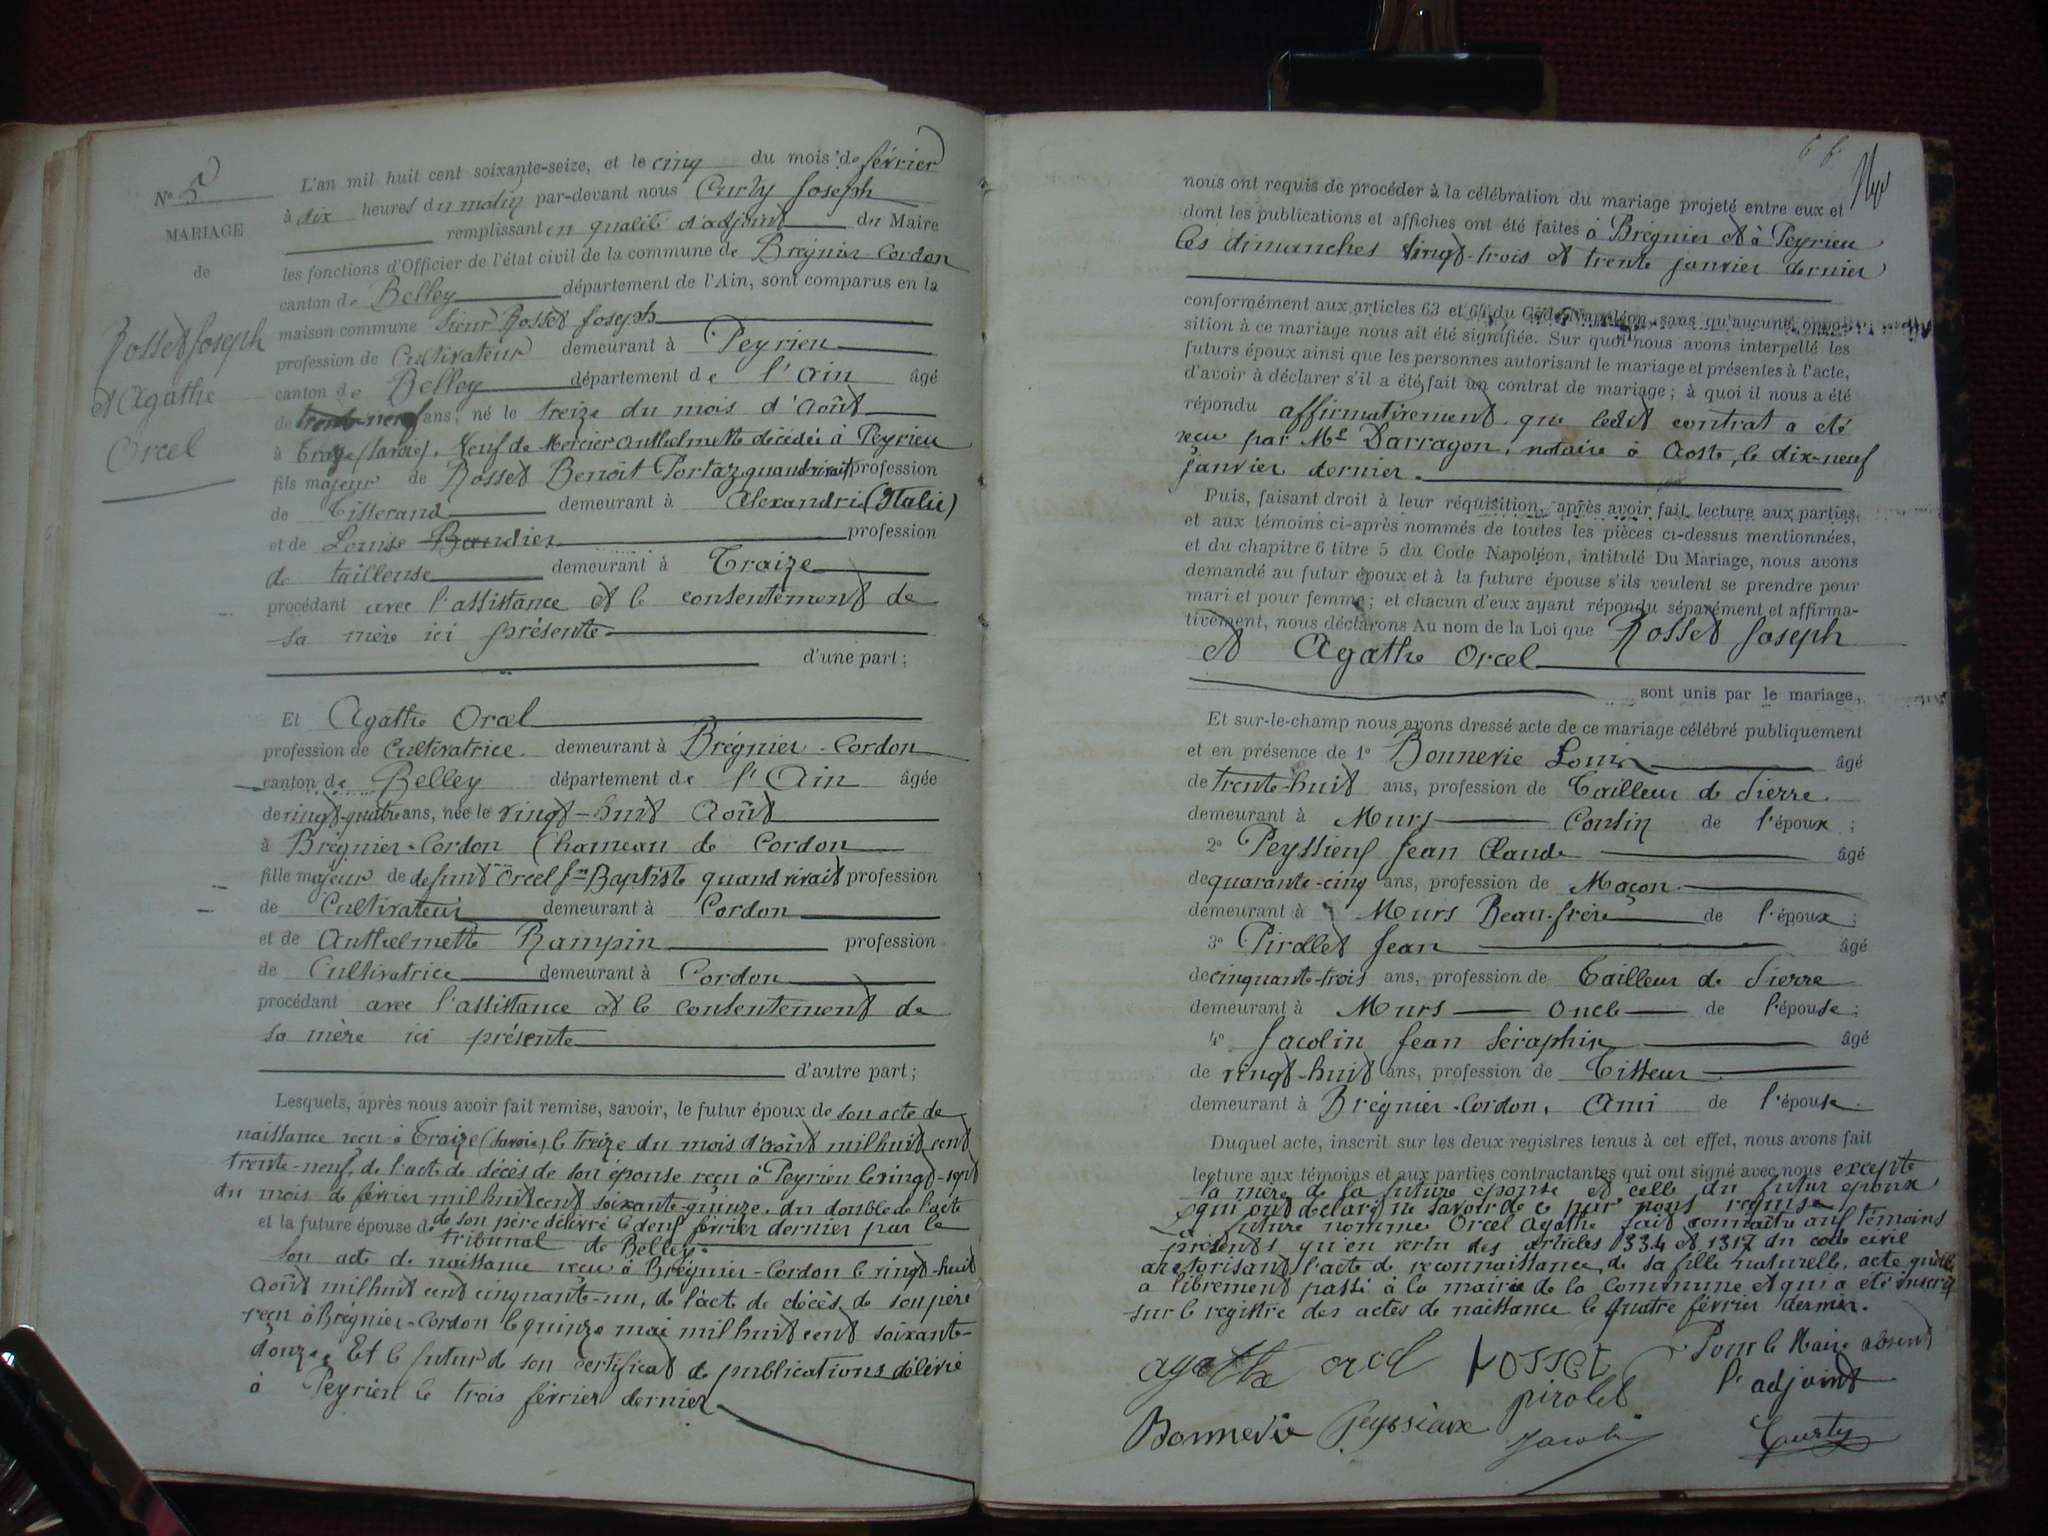 N° 5
MARIAGE
de
Rosset Joseph
et Agathe
Orcel
L'an mil huit cent soixante-seize, et le cinq du mois de février
à dix heures du matin par-devant nous Curty Joseph
remplissant en qualité d'adjoint du Maire
les fonctions d'Officier de l'état civil de la commune de Brégnier-Cordon
canton de Belley département de l'Ain, sont comparus en la
maison commune Sieur Rosset Joseph
profession de Cultivateur demeurant à Peyrieu
canton de Belley département de l'Ain âgé
de ans, né le treize du mois d'Août
à (Savoie), Veuf de Mercier Anthelmette décédée à Peyrieu
fils majeur de Rosset Benoît Portaz quand vivait profession
de Tisserand demeurant à Alexandrie (Italie)
et de Louise Baudier profession
de tailleuse demeurant à Traize
procédant avec l'assistance et le consentement de
sa mère ici présente
d'une part ;
Et Agathe Orcel
profession de Cultivatrice demeurant à Brégnier-Cordon
canton de Belley département de l'Ain âgée
de vingt-quatre ans, née le vingt-huit Août
à Brégnier-Cordon (hameau de Cordon
fille majeur de defunt Orcel Jn Baptiste quand vivait profession
de Cultivateur demeurant à Cordon
et de Anthelmette Rampin profession
de Cultivatrice demeurant à Cordon
procédant avec l'assistance et le consentement de
sa mère ici présente
d'autre part ;
Lesquels, après nous avoir fait remise, savoir, le futur époux de son acte de
naissance reçu à Traize (Savoie) le treize du mois d'août mil huit cent
trente-neuf, de l'acte de décès de son épouse reçu à Peyrieu le vingt-sept
du mois de février mil huit cent soixante-quinze, du double de l'acte
de son père délivré le deux février dernier par le
et la future épouse de tribunal de Belley.
son acte de naissance reçu à Brégnier-Cordon le vingt-huit
Août mil huit cent cinquante-un, de l'acte de décès de son père
reçu à Brégnier-Cordon le quinze mai mil huit cent soixante-
douze. Et le futur de son certificat de publications délivré
à Peyrieu le trois février dernier
66
nous ont requis de procéder à la célébration du mariage projeté entre eux et
dont les publications et affiches ont été faites à Brégnier et à Peyrieu
les dimanches vingt-trois et trente janvier dernier
conformément aux articles 63 et 64 du Code Napoléon, sans qu'aucune oppo-
sition à ce mariage nous ait été signifiée. Sur quoi nous avons interpellé les
futurs époux ainsi que les personnes autorisant le mariage et présentes à l'acte,
d'avoir à déclarer s'il a été fait un contrat de mariage ; à quoi il nous a été
répondu affirmativement, que ledit contrat a été
reçu par Me Darragon, notaire à Aoste, le dix-neuf
janvier dernier.
Puis, faisant droit à leur réquisition, après avoir fait lecture aux parties,
et aux témoins ci-après nommés de toutes les pièces ci-dessus mentionnées,
et du chapitre 6 titre 5 du Code Napoléon, intitulé Du Mariage, nous avons
demandé au futur époux et à la future épouse s'ils veulent se prendre pour
mari et pour femme ; et chacun d'eux ayant répondu séparément et affirma-
tivement, nous déclarons Au nom de la Loi que Rosset Joseph
et Agathe Orcel
sont unis par le mariage,
Et sur-le-champ nous avons dressé acte de ce mariage célébré publiquement
et en présence de 1° Bonnevie Louis âgé
de trente-huit ans, profession de Tailleur de Pierre
demeurant à Murs Cousin de l'époux ;
2° Peyssieux Jean Claude âgé
de quarante-cinq ans, profession de Maçon
demeurant à Murs Beau-frère de l'époux ;
3° Pirollet Jean âgé
de cinquante-trois ans, profession de Tailleur de Pierre
demeurant à Murs Oncle de l'épouse ;
4° Jacolin Jean Séraphin âgé
de vingt-huit ans, profession de Tisseur
demeurant à Brégnier-Cordon, Ami de l'épouse
Duquel acte, inscrit sur les deux registres tenus à cet effet, nous avons fait
lecture aux témoins et aux parties contractantes qui ont signé avec nous excepté
la mère de la future épouse et celle du futur époux,
qui ont déclaré ne savoir de ce par nous requise
La future nommé Orcel Agathe fait connaître aux témoins
présents qu'en vertu des articles 334 et 1317 du code civil
autorisant l'acte de reconnaissance de sa fille naturelle, acte qu'elle
a librement passé à la mairie de la Commune et qui a été inscrit
sur le registre des actes de naissance le quatre février dernier.
agathe orcel rosset Pour le Maire absent
pirolet l'adjoint
Bonnevie Peyssieux Jacolin Curty